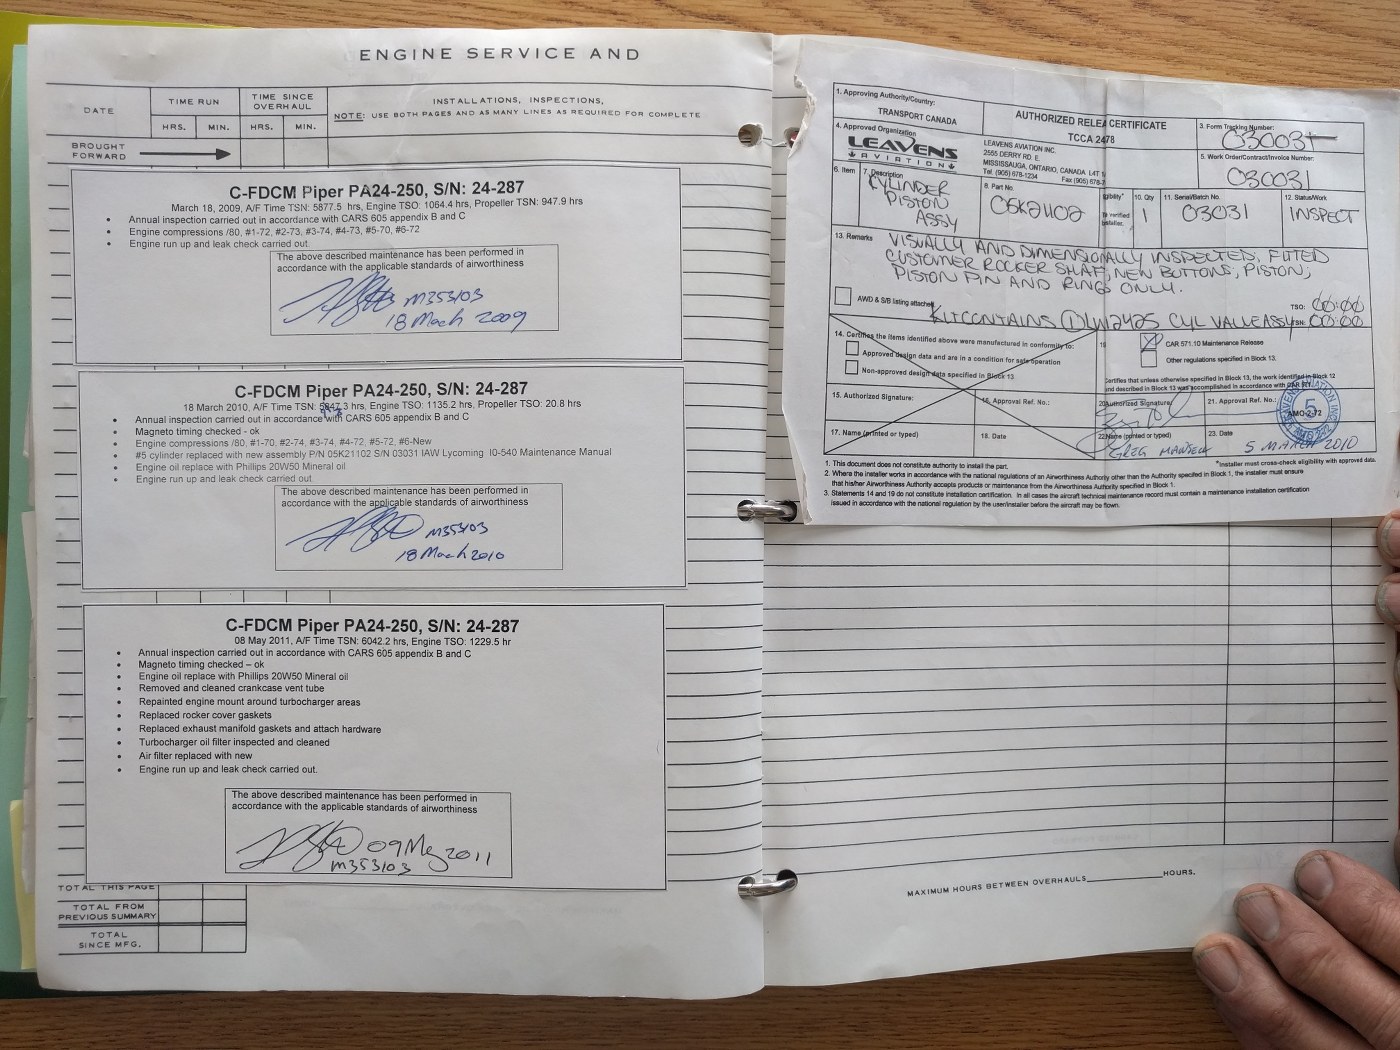 ENGINE SERVICE AND
DATE
TIME RUN
TIME SINCE OVERHAUL
HRS. MIN. HRS. MIN.
INSTALLATIONS, INSPECTIONS,
NOTE: USE BOTH PAGES AND AS MANY LINES AS REQUIRED FOR COMPLETE
BROUGHT
FORWARD
C-FDCM Piper PA24-250, S/N: 24-287
March 18, 2009, A/F Time TSN: 5877.5 hrs, Engine TSO: 1064.4 hrs, Propeller TSN: 947.9 hrs
• Annual inspection carried out in accordance with CARS 605 appendix B and C
• Engine compressions /80, #1-72, #2-73, #3-74, #4-73, #5-70, #6-72
• Engine run up and leak check carried out
The above described maintenance has been performed in
accordance with the applicable standards of airworthiness
M353103
18 March 2009
C-FDCM Piper PA24-250, S/N: 24-287
18 March 2010, A/F Time TSN: .3 hrs, Engine TSO: 1135.2 hrs, Propeller TSO: 20.8 hrs
• Annual inspection carried out in accordance with CARS 605 appendix B and C
• Magneto timing checked - ok
• Engine compressions /80, #1-70, #2-74, #3-74, #4-72, #5-72, #6-New
• #5 cylinder replaced with new assembly P/N 05K21102 S/N 03031 IAW Lycoming I0-540 Maintenance Manual
• Engine oil replace with Phillips 20W50 Mineral oil
• Engine run up and leak check carried out
The above described maintenance has been performed in
accordance with the applicable standards of airworthiness
M353103
18 March 2010
C-FDCM Piper PA24-250, S/N: 24-287
08 May 2011, A/F Time TSN: 6042.2 hrs, Engine TSO: 1229.5 hr
• Annual inspection carried out in accordance with CARS 605 appendix B and C
• Magneto timing checked – ok
• Engine oil replace with Phillips 20W50 Mineral oil
• Removed and cleaned crankcase vent tube
• Repainted engine mount around turbocharger areas
• Replaced rocker cover gaskets
• Replaced exhaust manifold gaskets and attach hardware
• Turbocharger oil filter inspected and cleaned
• Air filter replaced with new
• Engine run up and leak check carried out.
The above described maintenance has been performed in
accordance with the applicable standards of airworthiness
09 May 2011
M353103
TOTAL THIS PAGE
TOTAL FROM
PREVIOUS SUMMARY
TOTAL
SINCE MFG.
1. Approving Authority/Country:
TRANSPORT CANADA
AUTHORIZED RELEA CERTIFICATE
TCCA 2478
3. Form Tracking Number:
03003
4. Approved Organization
LEAVENS
AVIATION
LEAVENS AVIATION INC.
2555 DERRY RD. E.
MISSISSAUGA, ONTARIO, CANADA L4T 1
Tel. (905) 678-1234 Fax (905) 678-7
5. Work Order/Contract/Invoice Number:
030031
6. Item
7. Description
CYLINDER
PISTON
ASSY
8. Part No.
05K21102
10. Qty
1
11. Serial/Batch No.
03031
12. Status/Work
INSPECT
13. Remarks
VISUALLY AND DIMENSIONALLY INSPECTED. FITTED
CUSTOMER ROCKER SHAF, NEW BUTTONS, PISTON,
PISTON PIN AND RINGS ONLY.
AWD & S/B listing attached
KIT CONTAINS (1) LW12425 CYL VALVE ASSY
TSO: 00:00
TSN: 00:00
14. Certifies the items identified above were manufactured in conformity to:
Approved design data and are in a condition for safe operation
Non-approved design data specified in Block 13
CAR 571.10 Maintenance Release
Other regulations specified in Block 13.
Certifies that unless otherwise specified in Block 13, the work identified in Block 12
and described in Block 13 was accomplished in accordance with CAR 571
15. Authorized Signature:
16. Approval Ref. No.:
20 Authorized Signature:
21. Approval Ref. No.:
AMO 2-72
17. Name (printed or typed)
18. Date
22 Name (printed or typed)
GREG
23. Date
5 MARCH 2010
*Installer must cross-check eligibility with approved data.
1. This document does not constitute authority to install the part.
2. Where the installer works in accordance with the national regulations of an Airworthiness Authority other than the Authority specified in Block 1, the installer must ensure
that his/her Airworthiness Authority accepts products or maintenance from the Airworthiness Authority specified in Block 1.
3. Statements 14 and 19 do not constitute installation certification. In all cases the aircraft technical maintenance record must contain a maintenance installation certification
issued in accordance with the national regulation by the user/installer before the aircraft may be flown.
MAXIMUM HOURS BETWEEN OVERHAULS HOURS.